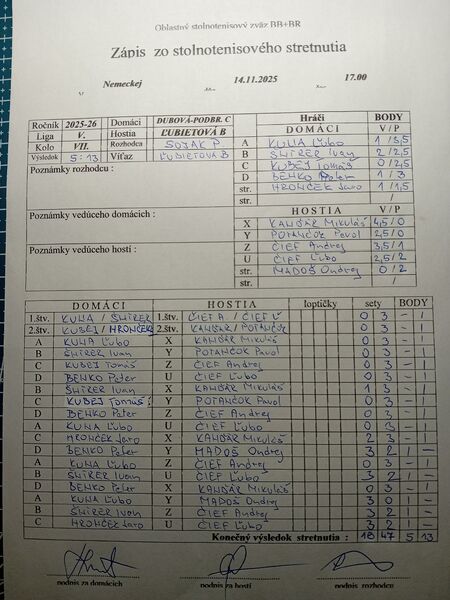 Oblastný stolnotenisový zväz BB+BR
Zápis zo stolnotenisového stretnutia
V Nemeckej dňa 14.11.2025 17.00
Ročník 2025-26 Domáci DUBOVÁ-PODBR. C
Liga V. Hostia ĽUBIETOVÁ B
Kolo VII. Rozhodca SOJAK P.
Výsledok 5:13 Víťaz ĽUBIETOVÁ B
Hráči BODY
DOMÁCI V/P
A KUNA Ľubo 1/3,5
B ŠNÍRER Ivan 2/2,5
C KUBEJ Tomáš 0/2,5
D BENKO Peter 1/3
str. HRONČEK Jaro 1/1,5
str.
Poznámky rozhodcu :
Poznámky vedúceho domácich :
Poznámky vedúceho hostí :
HOSTIA V/P
X KANDÁR Mikuláš 4,5/0
Y POTANČOK Pavol 2,5/0
Z ČIEF Andrej 3,5/1
U ČIEF Ľubo 2,5/2
str. MADOŠ Ondrej 0/2
str. /
DOMÁCI HOSTIA loptičky sety BODY
1.štv. KUNA / ŠNÍRER 1.štv. ČIEF A. / ČIEF Ľ 0 3 - 1
2.štv. KUBEJ / HRONČEK 2.štv. KANDÁR / POTANČOK 0 3 - 1
A KUNA Ľubo X KANDÁR Mikuláš 0 3 - 1
B ŠNÍRER Ivan Y POTANČOK Pavol 0 3 - 1
C KUBEJ Tomáš Z ČIEF Andrej 0 3 - 1
D BENKO Peter U ČIEF Ľubo 0 3 - 1
B ŠNÍRER Ivan X KANDÁR Mikuláš 1 3 - 1
C KUBEJ Tomáš Y POTANČOK Pavol 0 3 - 1
D BENKO Peter Z ČIEF Andrej 0 3 - 1
A KUNA Ľubo U ČIEF Ľubo 0 3 - 1
C HRONČEK Jaro X KANDÁR Mikuláš 2 3 - 1
D BENKO Peter Y MADOŠ Ondrej 3 2 1 -
A KUNA Ľubo Z ČIEF Andrej 0 3 - 1
B ŠNÍRER Ivan U ČIEF Ľubo 3 2 1 -
D BENKO Peter X KANDÁR Mikuláš 0 3 - 1
A KUNA Ľubo Y MADOŠ Ondrej 3 0 1 -
B ŠNÍRER Ivan Z ČIEF Andrej 3 2 1 -
C HRONČEK Jaro U ČIEF Ľubo 3 2 1 -
Konečný výsledok stretnutia : 18 47 5 13
podpis za domácich podpis za hostí podpis rozhodcu